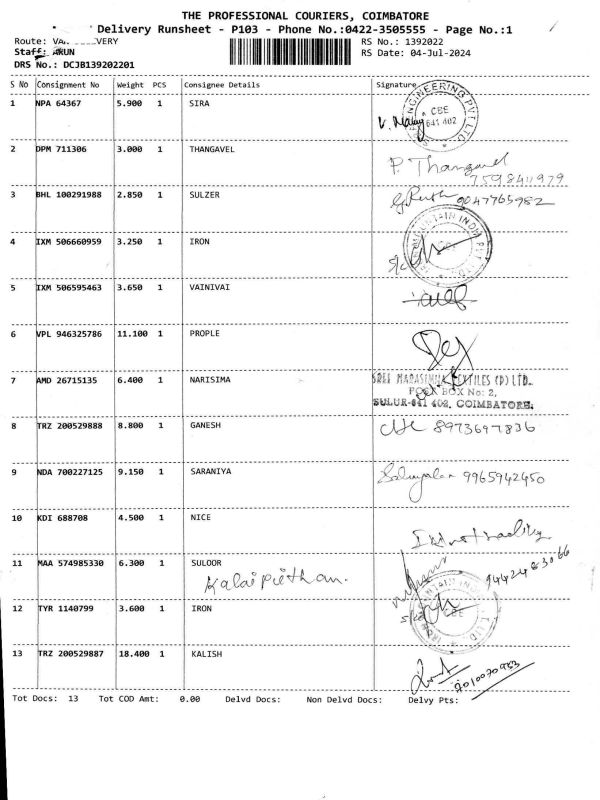 THE PROFESSIONAL COURIERS, COIMBATORE
Delivery Runsheet - P103 - Phone No.:0422-3505555 - Page No.:1
Route: VERY RS No.: 1392022
Staff: ARUN RS Date: 04-Jul-2024
DRS No.: DCJB139202201
S No Consignment No Weight PCS Consignee Details Signature
1 NPA 64367 5.900 1 SIRA
ENGINEERING PVT LTD
CBE
641 402
2 DPM 711306 3.000 1 THANGAVEL
P. Thangavel
7598411979
3 BHL 100291988 2.850 1 SULZER
9047765982
4 IXM 506660959 3.250 1 IRON
IRON MOUNTAIN INDIA PVT LTD
CBE
5 IXM 506595463 3.650 1 VAINIVAI
6 VPL 946325786 11.100 1 PROPLE
7 AMD 26715135 6.400 1 NARISIMA
SREE NARASIMHA TEXTILES (P) LTD.
POST BOX No: 2,
SULUR-641 402, COIMBATORE.
8 TRZ 200529888 8.800 1 GANESH
8973697836
9 NDA 700227125 9.150 1 SARANIYA
9965942450
10 KDI 688708 4.500 1 NICE
11 MAA 574985330 6.300 1 SULOOR
12 TYR 1140799 3.600 1 IRON
IRON MOUNTAIN INDIA PVT LTD
CBE
13 TRZ 200529887 18.400 1 KALISH
Tot Docs: 13 Tot COD Amt: 0.00 Delvd Docs: Non Delvd Docs: Delvy Pts: